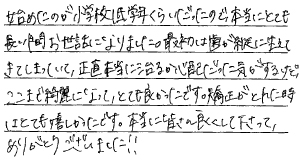 始めたのが小学校低学年くらいだったので本当にとても
長い間お世話になりました。最初は歯が斜に生えて
きてしまっていて、正直本当に治るか心配だった気がするけど、
ここまで綺麗になって、とても良かったです。矯正がとれた時
はとても嬉しかったです。本当に皆さん良くして下さって、
ありがとうございました!!